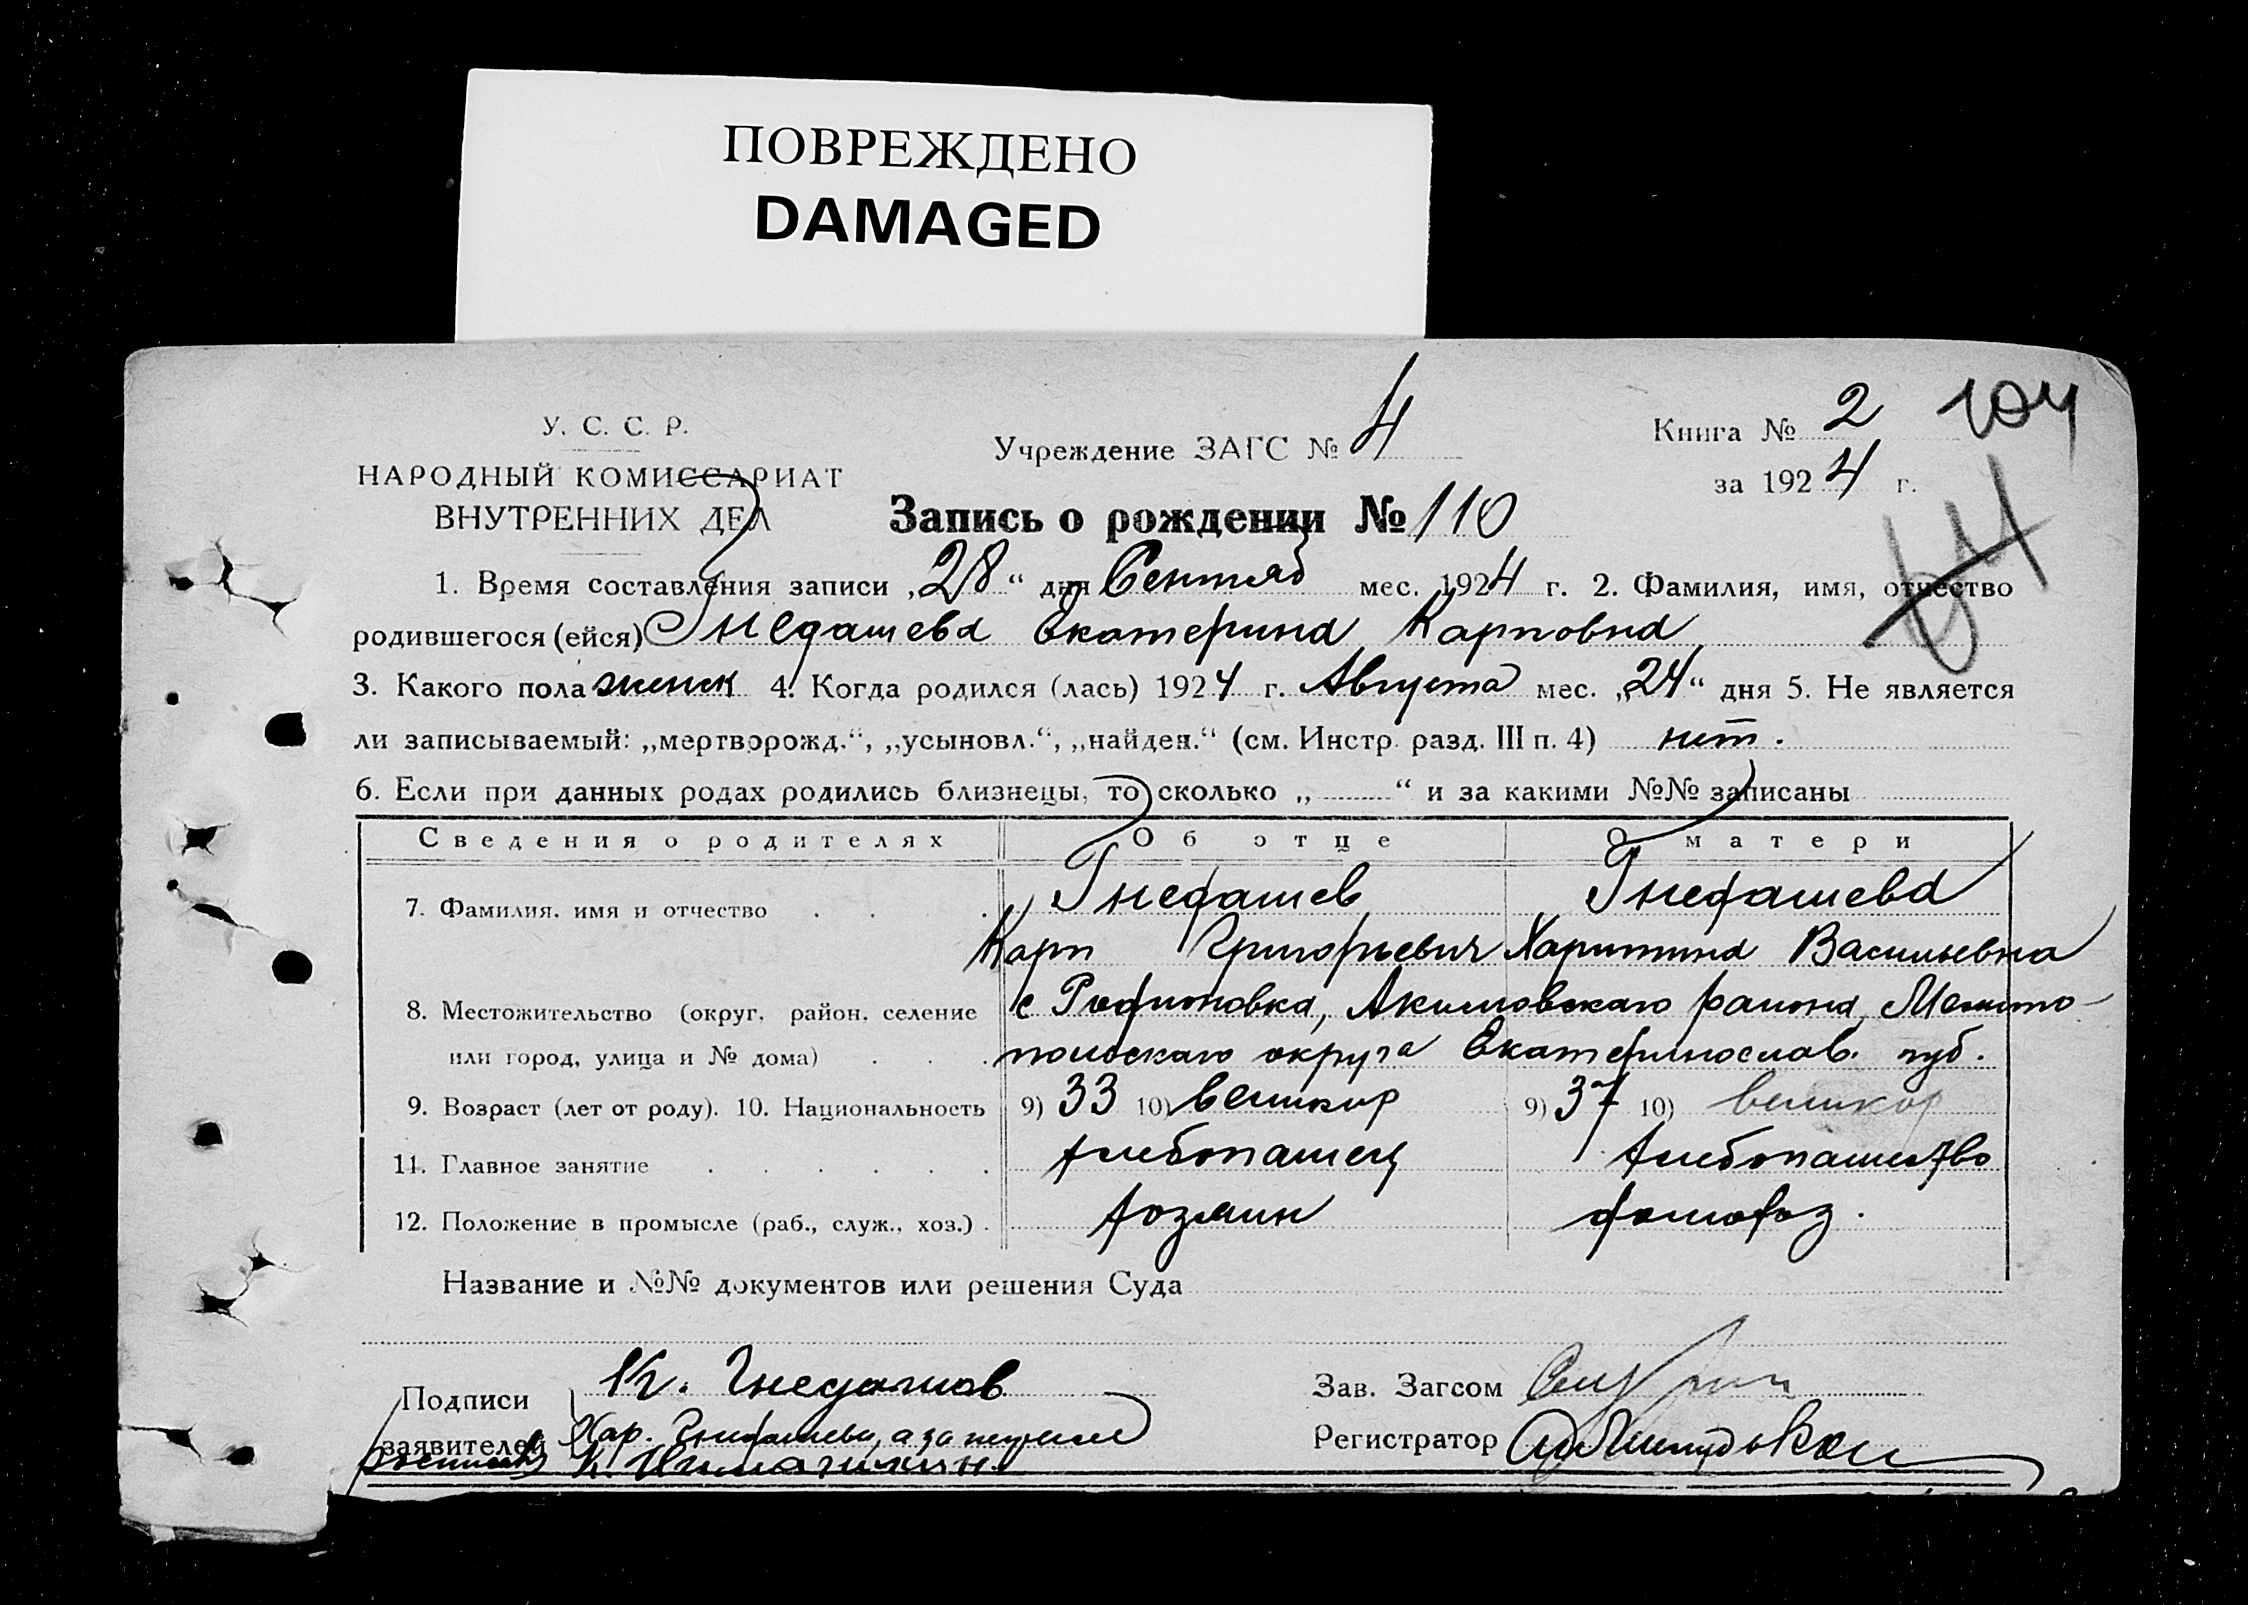 ПОВРЕЖДЕНО
DAMAGED
У. С. С. Р.
НАРОДНЫЙ КОМИССАРИАТ
ВНУТРЕННИХ ДЕЛ
Учреждение ЗАГС № 4
Книга № 2 104
за 1924 г.
Запись о рождении № 110
1. Время составления записи „28“ дня Сентяб мес. 1924 г. 2. Фамилия, имя, отчество
родившегося (ейся) Гнедашева Екатерина Карповна
3. Какого пола женск 4. Когда родился (лась) 1924 г. Августа мес. „24“ дня 5. Не является
ли записываемый: „мертворожд.“, „усыновл.“, „найден.“ (см. Инстр. разд. III п. 4) нет.
6. Если при данных родах родились близнецы, то сколько „ “ и за какими №№ записаны
Сведения о родителях Об отце О матери
7. Фамилия, имя и отчество Гнедашев Гнедашева
Карп Григорьевич Харитина Васильевна
8. Местожительство (округ, район, селение с Родионовка, Акимовскаго района, Мелито-
или город, улица и № дома) польскаго округа Екатеринослав. губ.
9. Возраст (лет от роду). 10. Национальность 9) 33 10) великор 9) 37 10) великор
11. Главное занятие хлебопашец хлебопашество
12. Положение в промысле (раб., служ., хоз.) хозяин домохоз.
Название и №№ документов или решения Суда
Подписи К. Гнедашов
заявителей Хар. Гнедашева, а за неграм
К.
Зав. Загсом
Регистратор